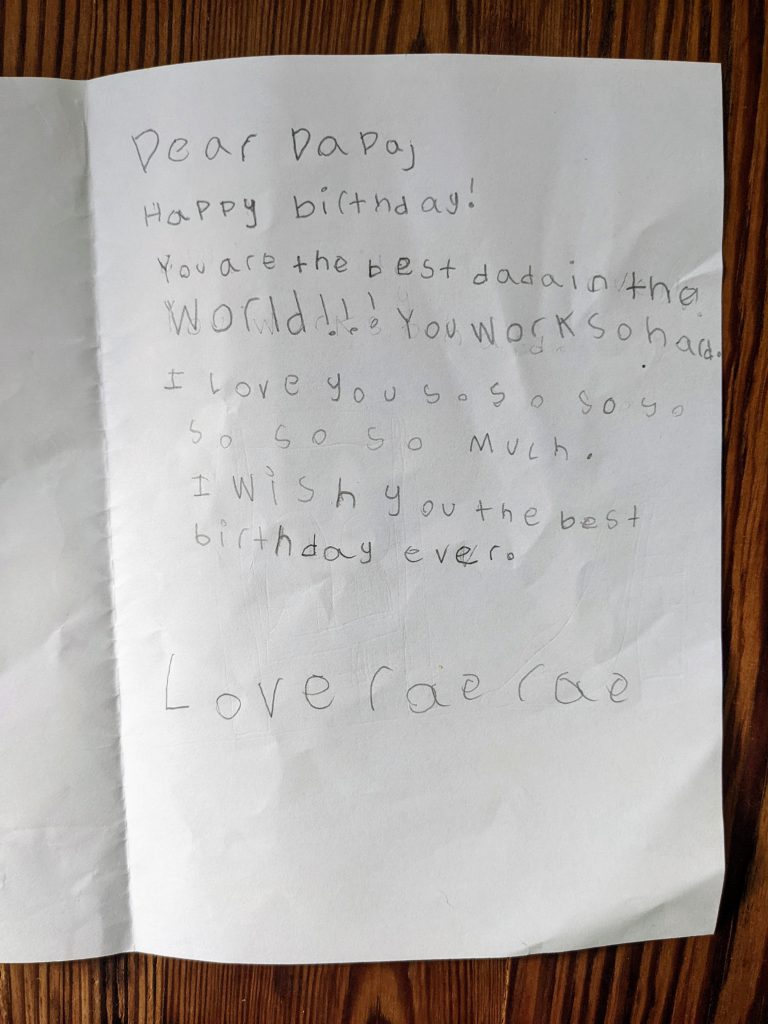 Dear Dapa,
Happy birthday!
You are the best dada in the
World!!! You work so hard.
I Love you so so so so
so so so much.
I wish you the best
birthday ever.
Love rae rae